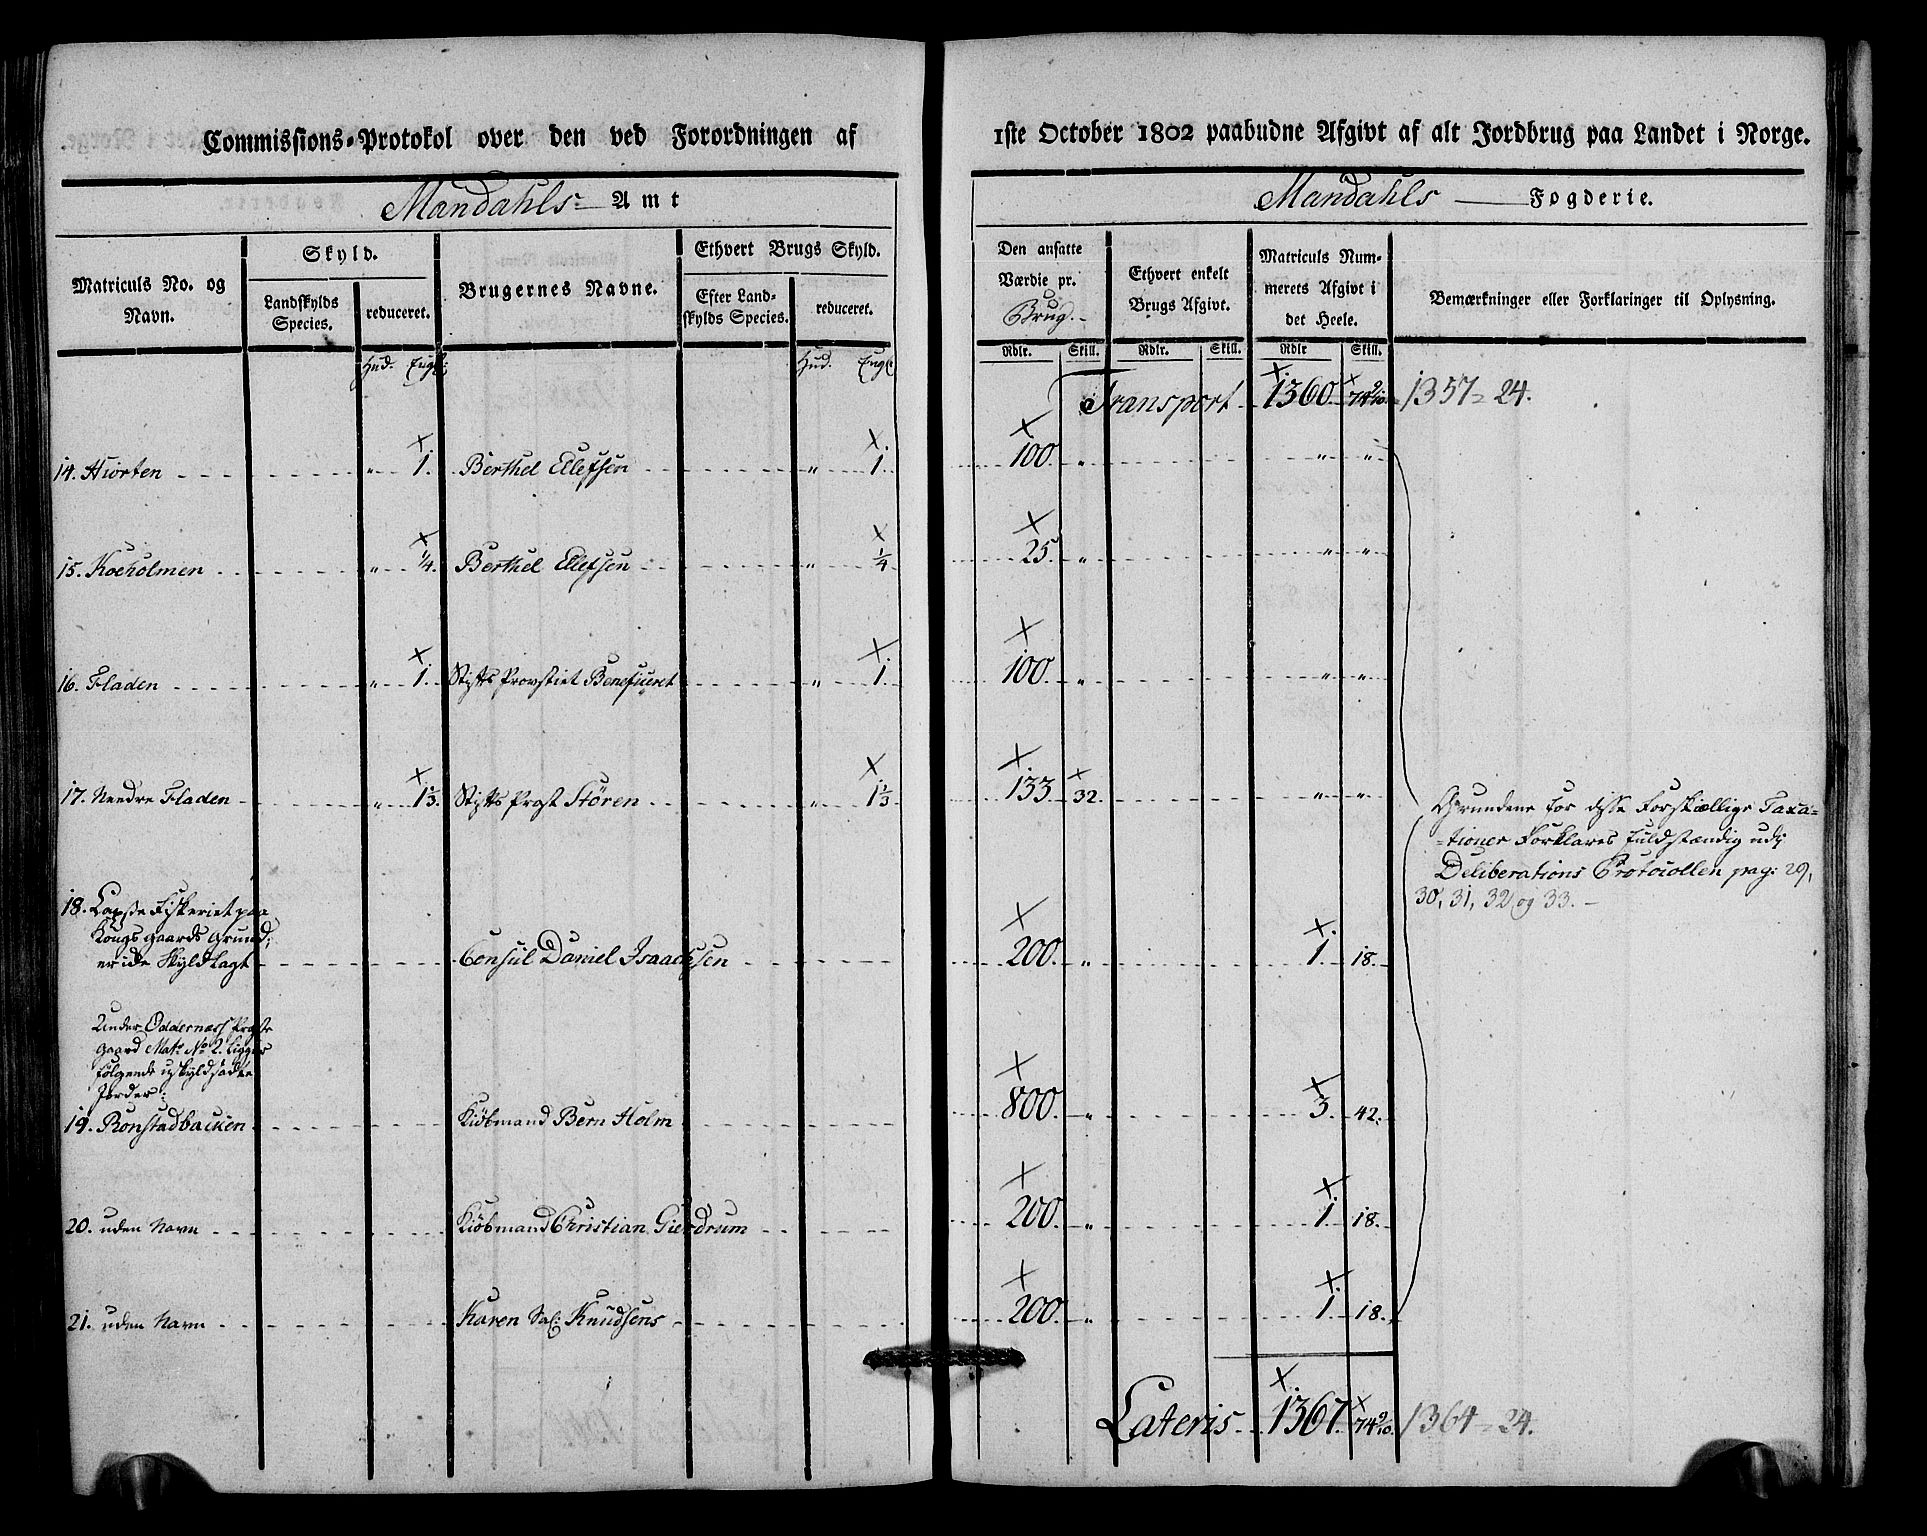 Commissions-Protokol over den ved Forordningen af
Mandahls Amt
Matriculs No. og
Navn.
Skyld.
Landskylds
Species.
reduceret.
Brugernes Navne.
Ethvert Brugs Skyld.
Efter Land-
skylds Species.
reduceret.
Hud. Engl:
Hud. Engl:
14. Hiorten " 1. Berthel Ellefsen " 1.
15. Koeholmen " 1/4. Berthel Ellefsen " 1/4
16. Fladen " 1. Stifts Provstiet Beneficeret " 1.
17. Needre Fladen " 1 1/3. Stifts Prost Stören " 1 1/3
18. Laxe Fiskeriet paa
Kongsgaards Grund,
er ide Skyldlagt Consul Daniel Isaachsen
Under Oddernæs Præste
gaard Mat: No 2. ligger
følgende uskyldsadte
Jorder:
19. Ronstadbacken Kiøbmand Bern Holm
20. uden Navn Kiøbmand Christian Gierdrum
21. uden Navn Karen Sal: Knudsens
1ste October 1802 paabudne Afgivt af alt Jordbrug paa Landet i Norge.
Mandahls Fogderie.
Den ansatte
Værdie pr.
Brug.
Ethvert enkelt
Brugs Afgivt.
Matriculs Num-
merets Afgivt i
det Heele.
Bemærkninger eller Forklaringer til Oplysning.
Rdlr. Skill. Rdlr. Skill. Rdlr Skill.
Transport 1360. 74 9/10. 1357 = 24.
100. " " "
25. " " "
100. " " "
133 32. " "
Grundene for disse Forskiællige Taxa=
=tioner Forklares fuldstændig udj
Deliberations Protocollen pag: 29,
30, 31, 32 og 33.
200. " 1. 18.
800. " 3. 42.
200. " 1. 18.
200. " 1. 18.
Lateris 1367. 74 9/10. 1364 = 24.